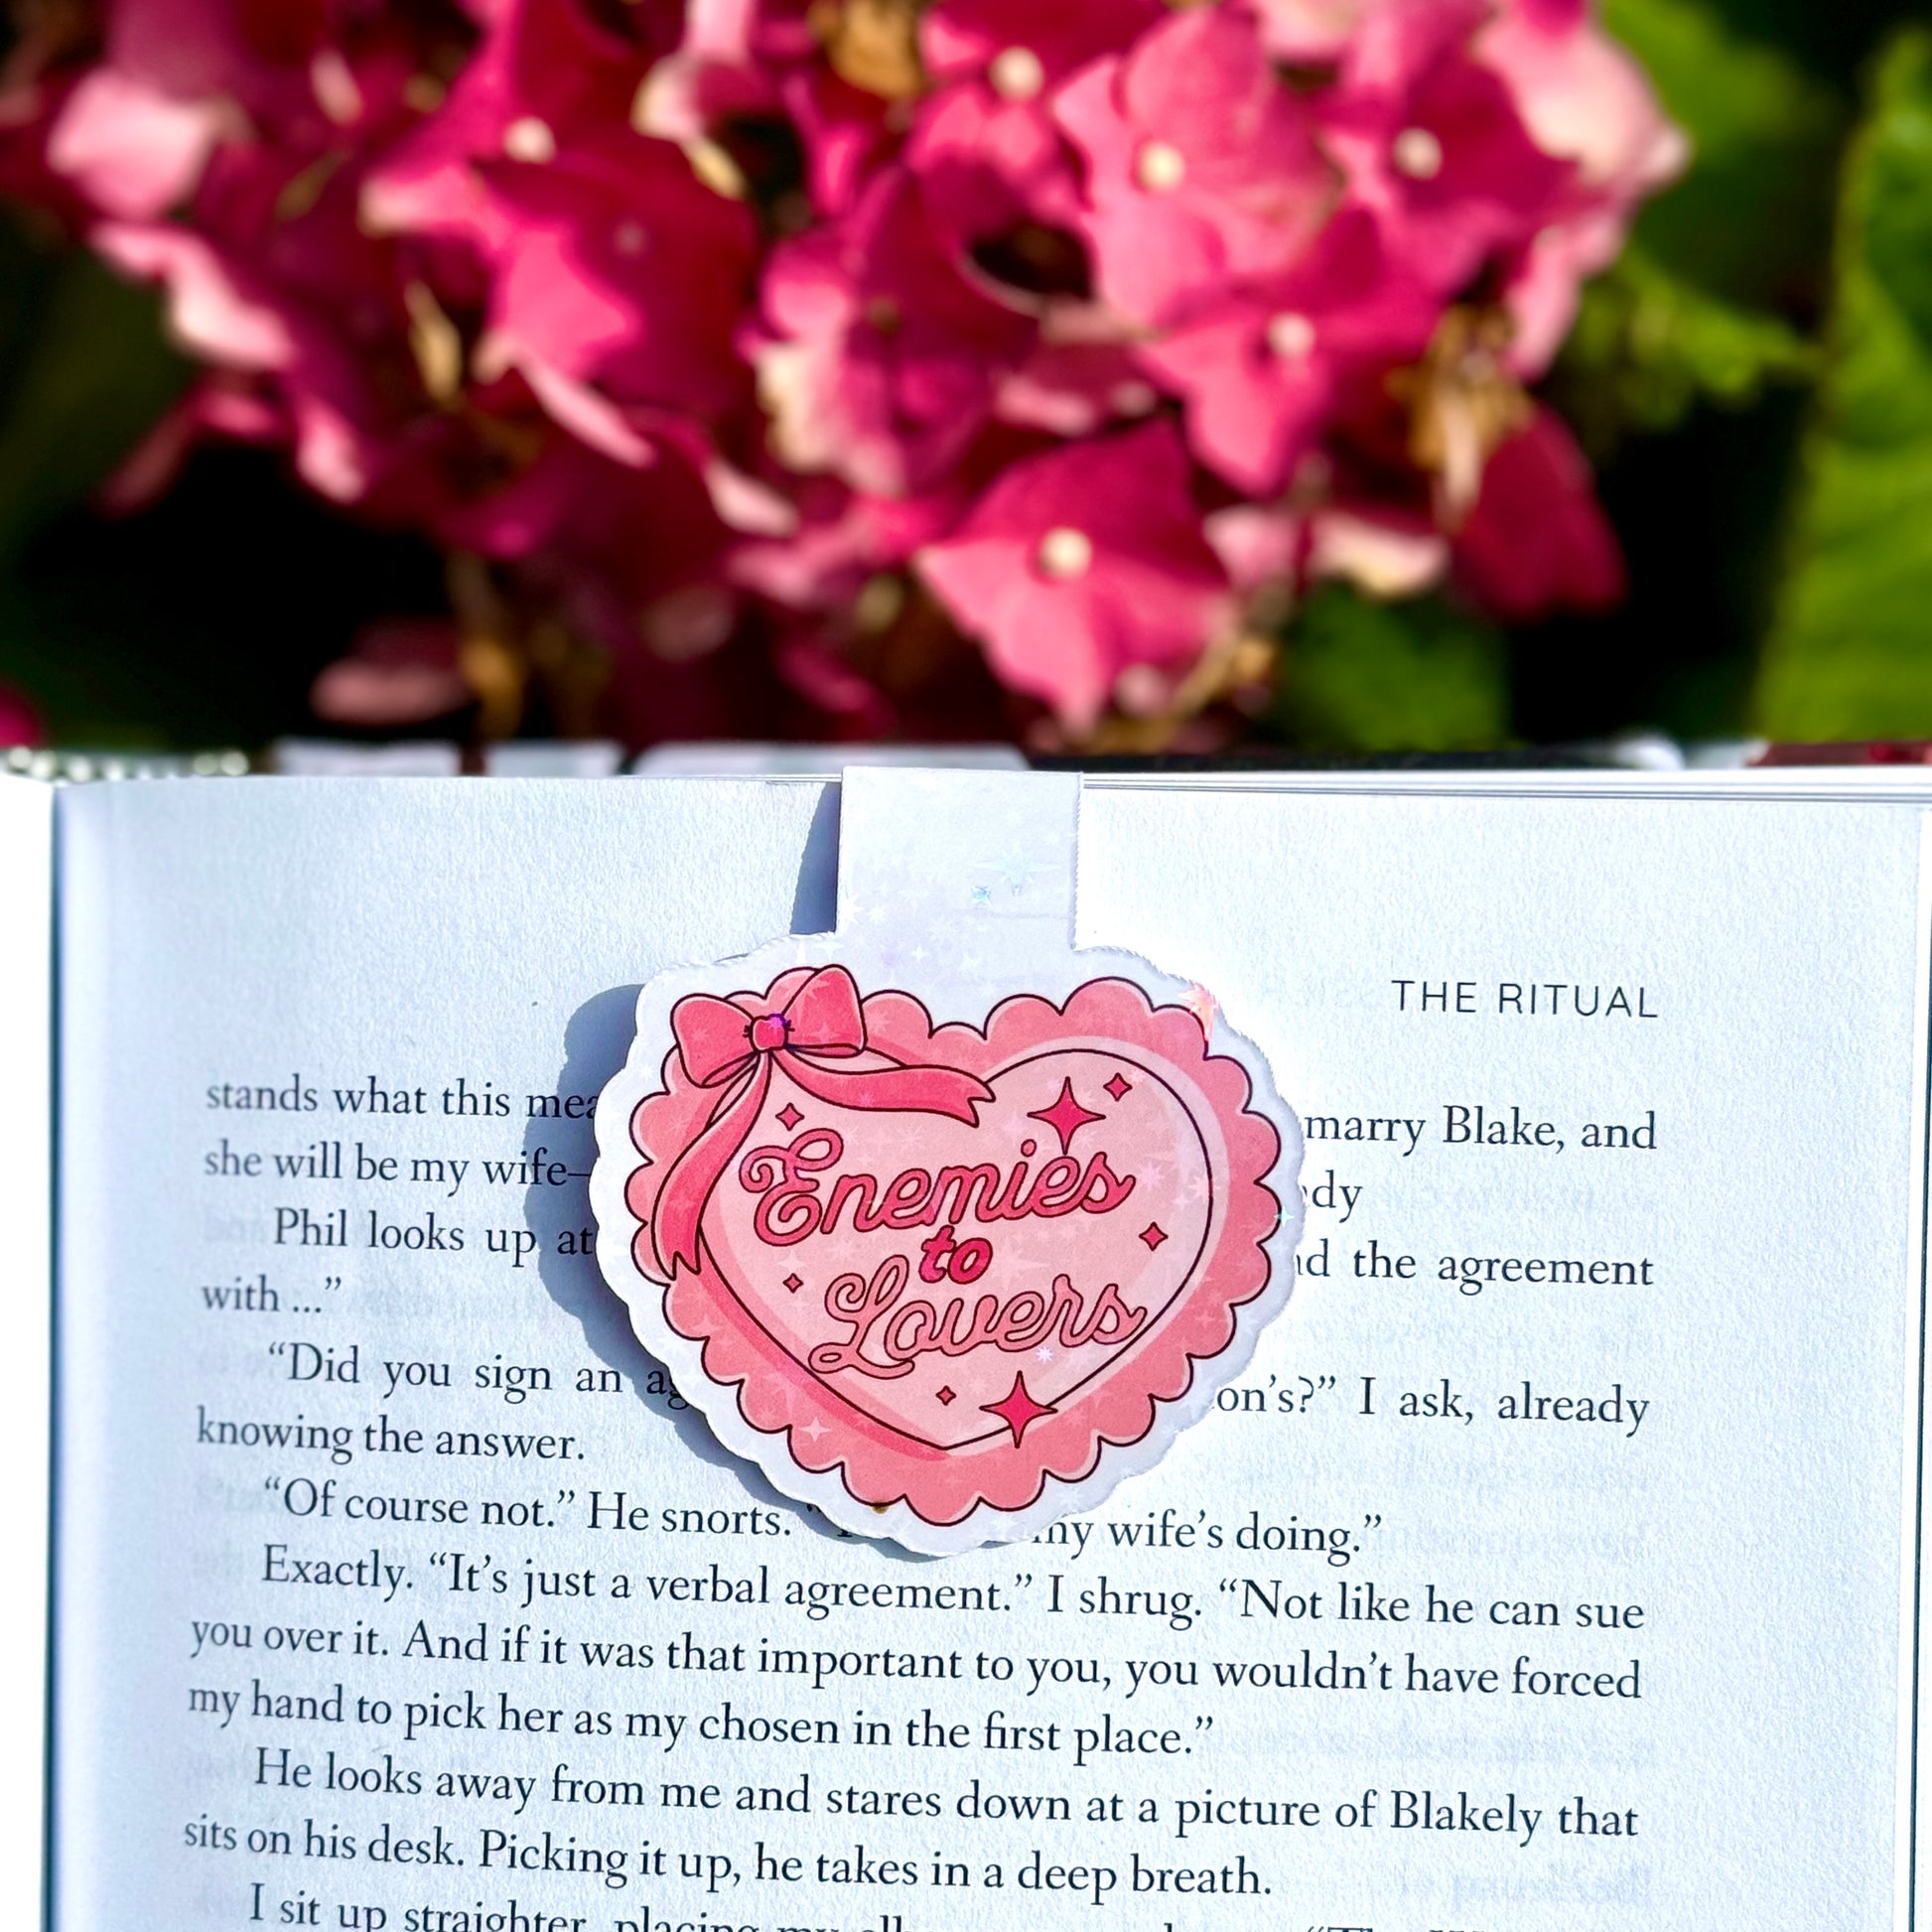 THE RITUAL
Enemies
to
Lovers
stands what this marry Blake, and
she will be my wife—
Phil looks up at the agreement
with ...”
“Did you sign an I ask, already
knowing the answer.
“Of course not.” He snorts. my wife’s doing.”
Exactly. “It’s just a verbal agreement.” I shrug. “Not like he can sue
you over it. And if it was that important to you, you wouldn’t have forced
my hand to pick her as my chosen in the first place.”
He looks away from me and stares down at a picture of Blakely that
sits on his desk. Picking it up, he takes in a deep breath.
I sit up straighter, placing my